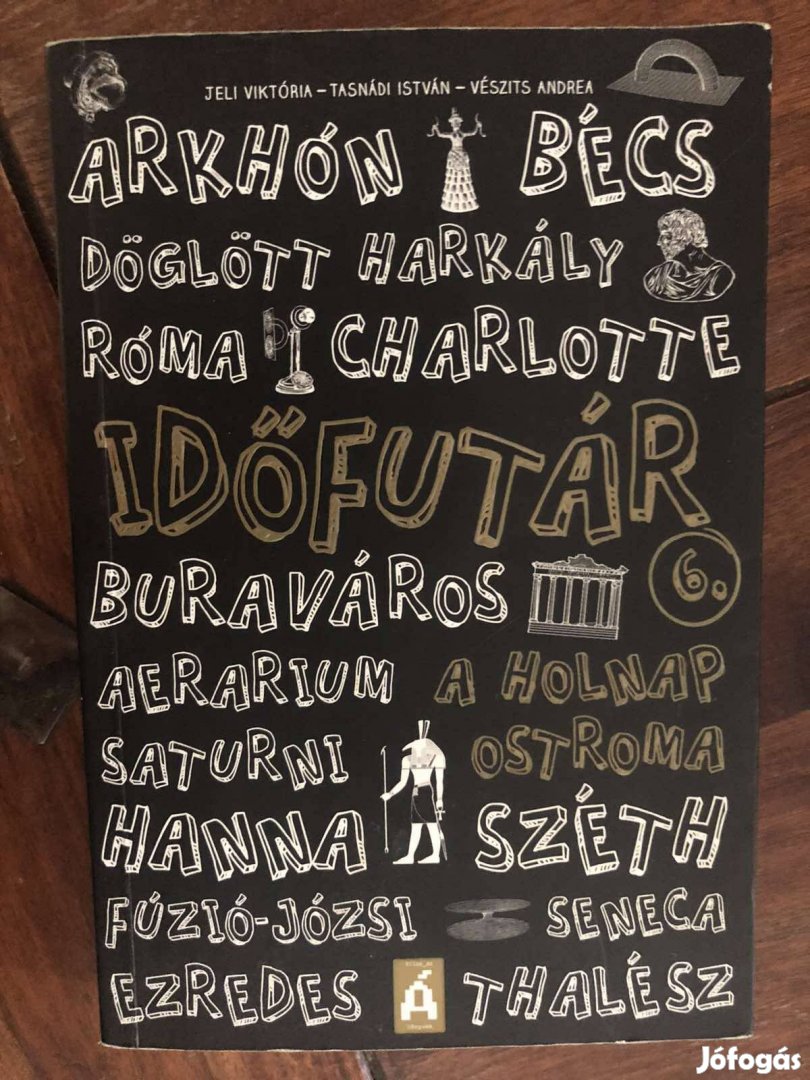 JELI VIKTÓRIA – TASNÁDI ISTVÁN – VÉSZITS ANDREA
ARKHÓN BÉCS
DÖGLÖTT HARKÁLY
RÓMA CHARLOTTE
IDŐFUTÁR
6.
BURAVÁROS
AERARIUM A HOLNAP
SATURNI OSTROMA
HANNA SZÉTH
FÚZIÓ-JÓZSI SENECA
EZREDES Á THALÉSZ
Jófogás